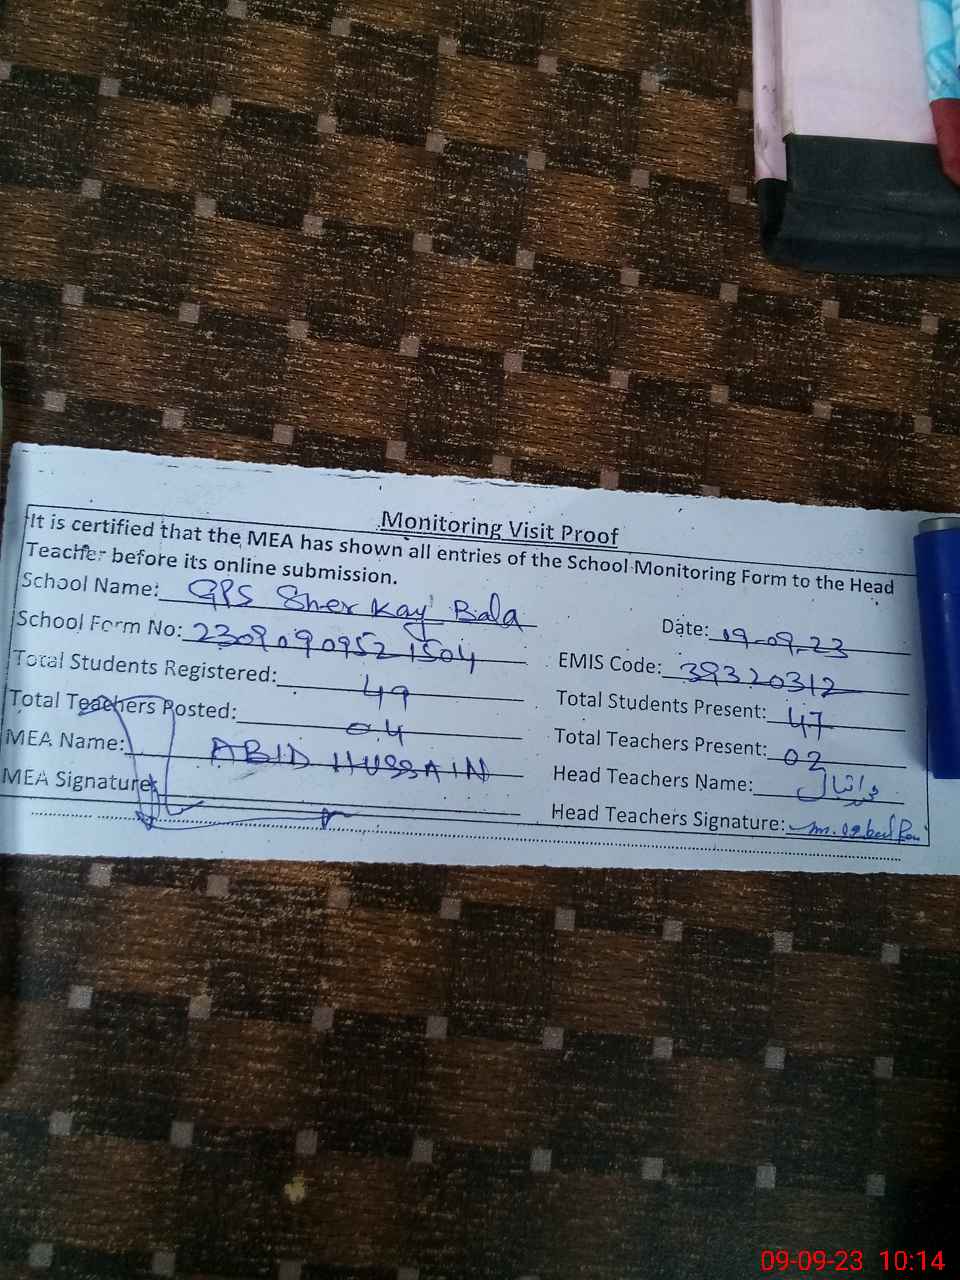 Monitoring Visit Proof
It is certified that the MEA has shown all entries of the School Monitoring Form to the Head
Teacher before its online submission.
School Name: GPS Sher Kay Bala
Date: 09-09-23
School Form No: 23090909521504
EMIS Code: 39320312
Total Students Registered: 49
Total Students Present: 47
Total Teachers Posted: 04
Total Teachers Present: 03
MEA Name: ABID HUSSAIN
Head Teachers Name: محمد اقبال
MEA Signature:
Head Teachers Signature: M. Iqbal
09-09-23 10:14